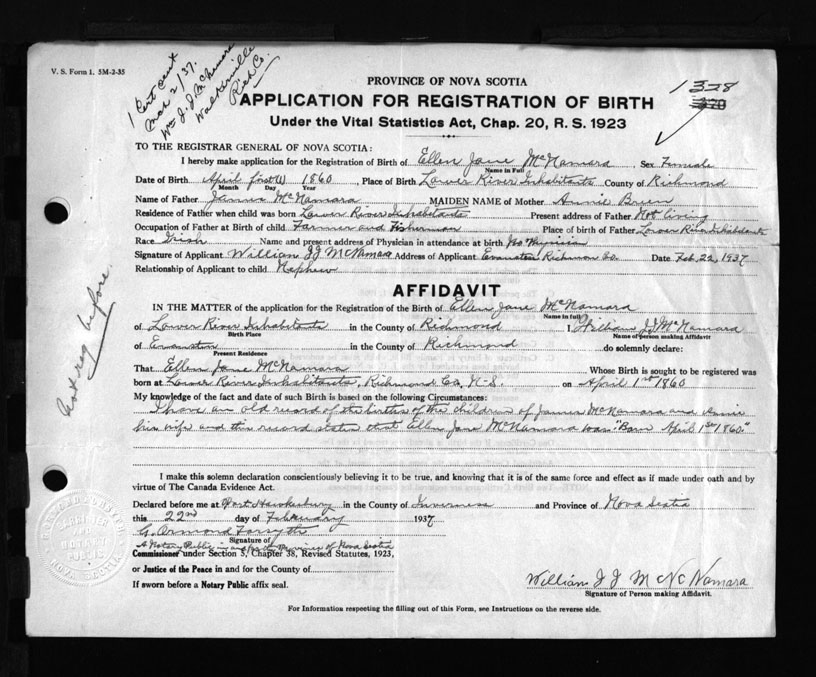 V. S. Form 1. 5M-2-35
1 Cert sent
Mch 2/37.
Wm J. J. McNamara
Walkerville
Rich Co.
PROVINCE OF NOVA SCOTIA
1328
APPLICATION FOR REGISTRATION OF BIRTH
Under the Vital Statistics Act, Chap. 20, R. S. 1923
TO THE REGISTRAR GENERAL OF NOVA SCOTIA:
I hereby make application for the Registration of Birth of Ellen Jane McNamara, Sex Female
Name in Full
Date of Birth April first (1) 1860, Place of Birth Lower River Inhabitants County of Richmond
Month Day Year
Name of Father James McNamara MAIDEN NAME of Mother Annie Brien
Residence of Father when child was born Lower River Inhabitants Present address of Father Not living
Occupation of Father at Birth of child Farmer and Fisherman Place of birth of Father Lower River Inhabitants
Race Irish Name and present address of Physician in attendance at birth No Physician
Signature of Applicant William JJ McNamara Address of Applicant Evanston Richmon Co. Date Feb. 22, 1937
Relationship of Applicant to child Nephew
Not reg before
AFFIDAVIT
IN THE MATTER of the application for the Registration of the Birth of Ellen Jane McNamara
Name in full
of Lower River Inhabitants in the County of Richmond I, William JJ McNamara
Birth Place Name of person making Affidavit
of Evanston in the County of Richmond do solemnly declare:
Present Residence
That Ellen Jane McNamara Whose Birth is sought to be registered was
born at Lower River Inhabitants, Richmond Co, N-S. on April 1st 1860
My knowledge of the fact and date of such Birth is based on the following Circumstances:
I have an old record of the births of the children of James McNamara and Annie
his wife and this record states that Ellen Jane McNamara was "Born April 1st 1860."
I make this solemn declaration conscientiously believing it to be true, and knowing that it is of the same force and effect as if made under oath and by
virtue of The Canada Evidence Act.
Declared before me at Port Hawkesbury in the County of Inverness and Province of Nova Scotia
this 22nd day of February 1937
G. Ormond Forsyth
Signature of
A Notary Public in and for the Province of Nova Scotia
Commissioner under Section 5, Chapter 38, Revised Statutes, 1923,
or Justice of the Peace in and for the County of
If sworn before a Notary Public affix seal.
William J J Mc Namara
Signature of Person making Affidavit.
For Information respecting the filling out of this Form, see Instructions on the reverse side.